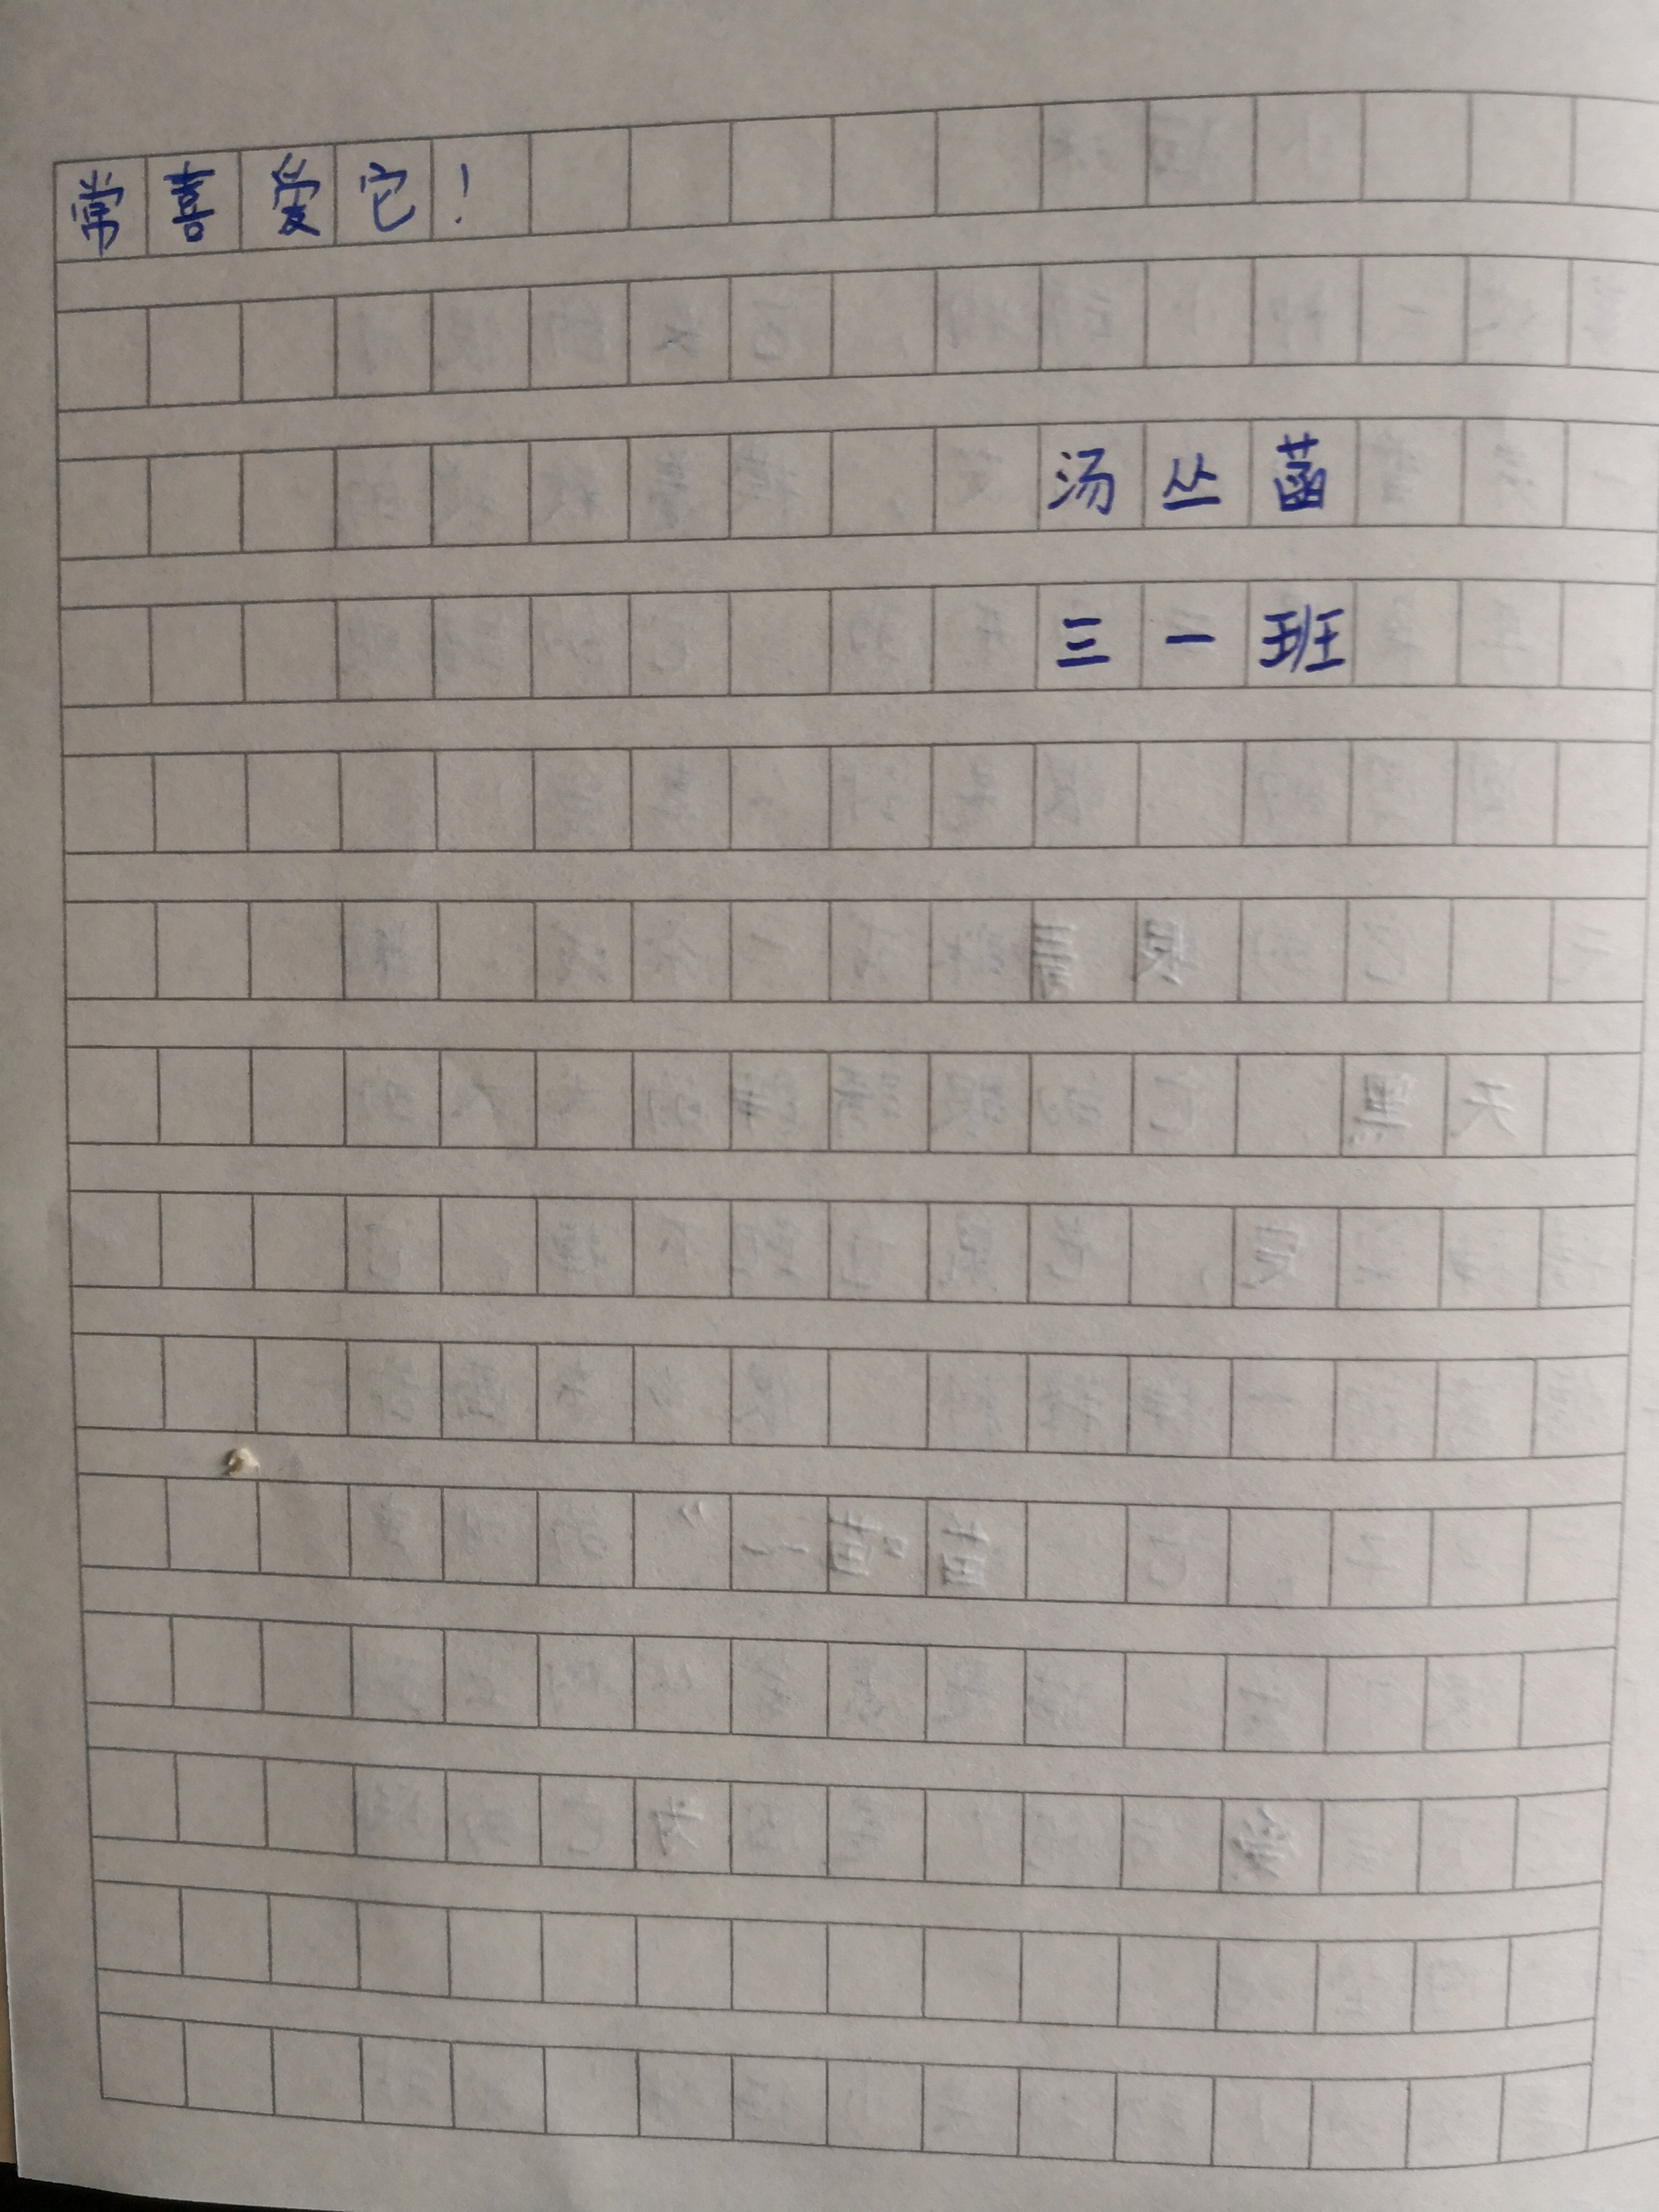 常喜爱它！
汤丛菡
三一班